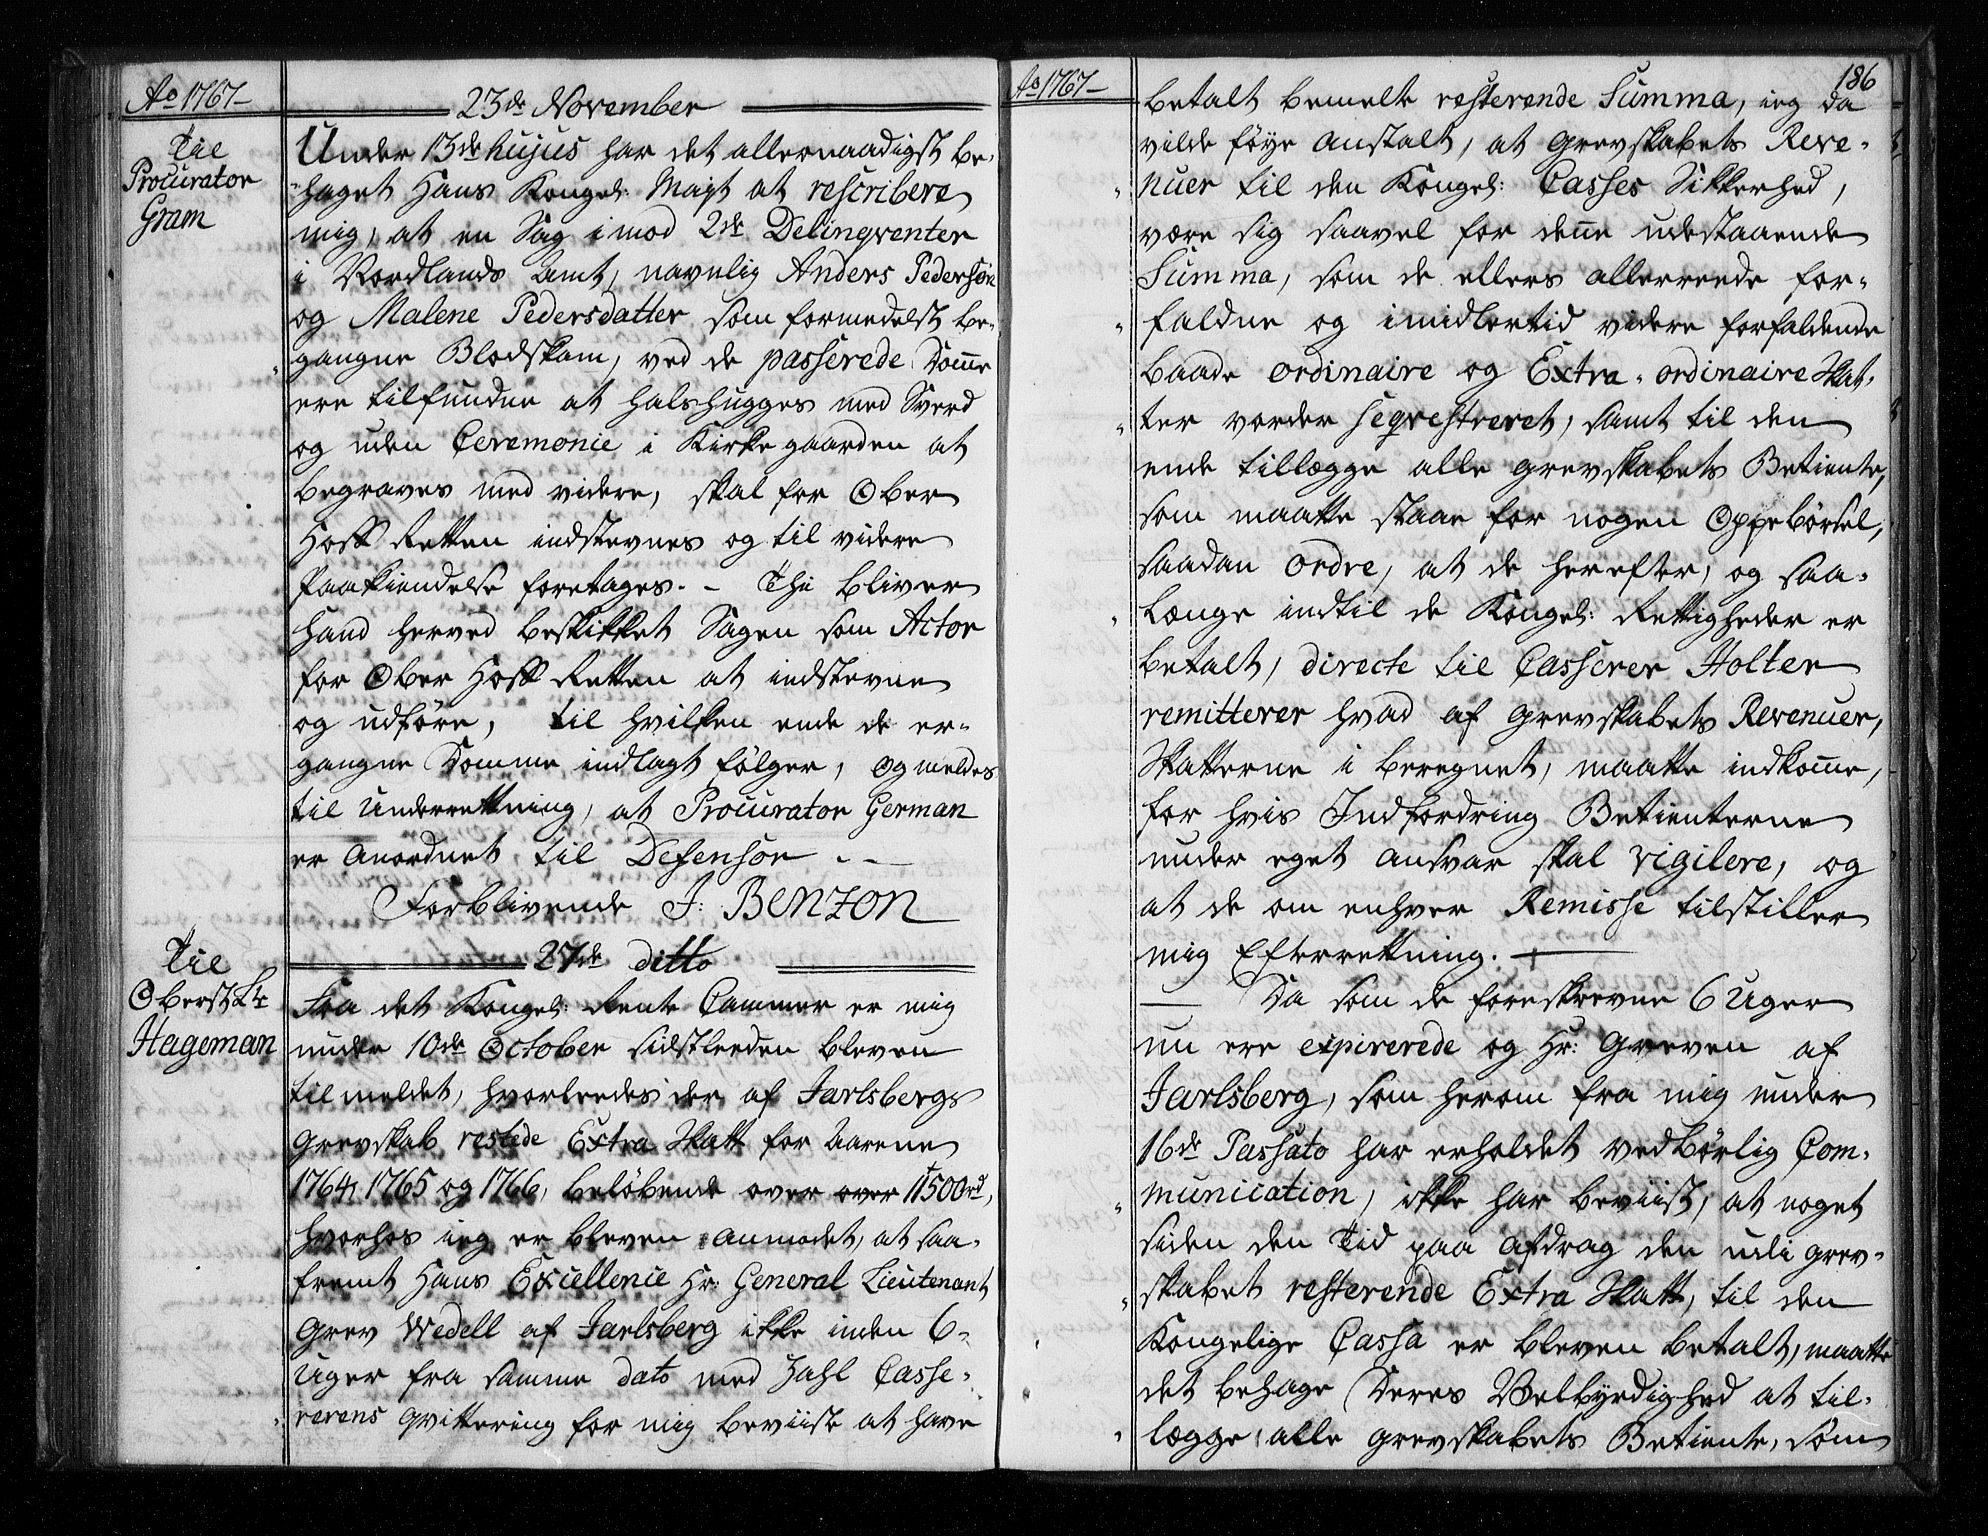 Ao 1767
23de November
Til
Procurator
Gram
Under 13de hujus har det allernaadigst be-
haget Hans Kongel: Mayt at rescribere
mig, at en Sag imod 2de Delinqventer
i Nordlands Amt, navnlig Anders Pedersøn
og Malene Pedersdatter som formedelst be-
gangne Blodskam, ved de passerede Domme
ere tilfundne at halshugges med Sverd
og uden Ceremonie i Kirkegaarden at
begraves med videre, skal for Ober
Hoff Retten indstevnes og til videre
Paakiendelse foretages. - Thi bliver
Hand herved beskikket Sagen som Actor
for Ober Hoff Retten at indstevne
og udføre, til hvilken ende de er-
gangne Domme indlagt følger, og meldes
til Underrettning, at Procurator German
er anordnet til Defensor.
Forblivende J: Benzon
27de ditto
Til
Oberst Lt
Hageman
Fra det Kongel: Rente Cammer er mig
under 10de October sidstleeden bleven
tilmeldet, hvorleedes der af Jarlsbergs
Grevskab restede Extra Skatt for Aarene
1764, 1765 og 1766, beløbende over over 11500rd,
hvorhos ieg er bleven anmodet, at saa-
fremt Hans Excellence Hr: General Lieutenant
Grev Wedell af Jarlsberg ikke inden 6
Uger fra samme dato med Zahl Casse-
rerens Qvittering for mig beviiste at have
Ao 1767
186
betalt bemelte resterende Summa, ieg da
vilde føye Anstalt, at Grevskabets Reve-
nuer til den Kongel: Casses Sikkerhed,
være sig saavel for denne udestaaende
Summa, som de ellers allerreede for-
faldne og imidlertid videre forfaldende
baade ordinaire og Extra-ordinaire Skat-
ter vorder seqvestreret, samt til den
ende tillegge alle Grevskabets Betiente,
som maatte staae for nogen Oppebørsel,
saadan Ordre, at de herefter, og saa-
længe indtil de Kongel: Rettigheder er
betalt, directe til Casserer Holter
remitterer hvad af Grevskabets Revenuer,
Skatterne i beregnet, maatte indkomme,
for hvis Indfordring Betienterne
under eget Ansvar skal vigilere, og
at de om enhver Remisse tilstiller
mig Efterrettning.
Da som de foreskrevne 6 Uger
nu ere expirerede og Hr: Greven af
Jarlsberg, som herom fra mig under
16de Passato har erholdet vedbørlig Com-
munication, ikke har beviist, at noget
siden den Tid paa Afdrag den udi Grev-
skabet resterende Extra Skatt, til den
Kongelige Cassa er bleven betalt, maatte
det behage Deres Velbyrdighed at til-
lægge alle Grevskabets Betiente, som